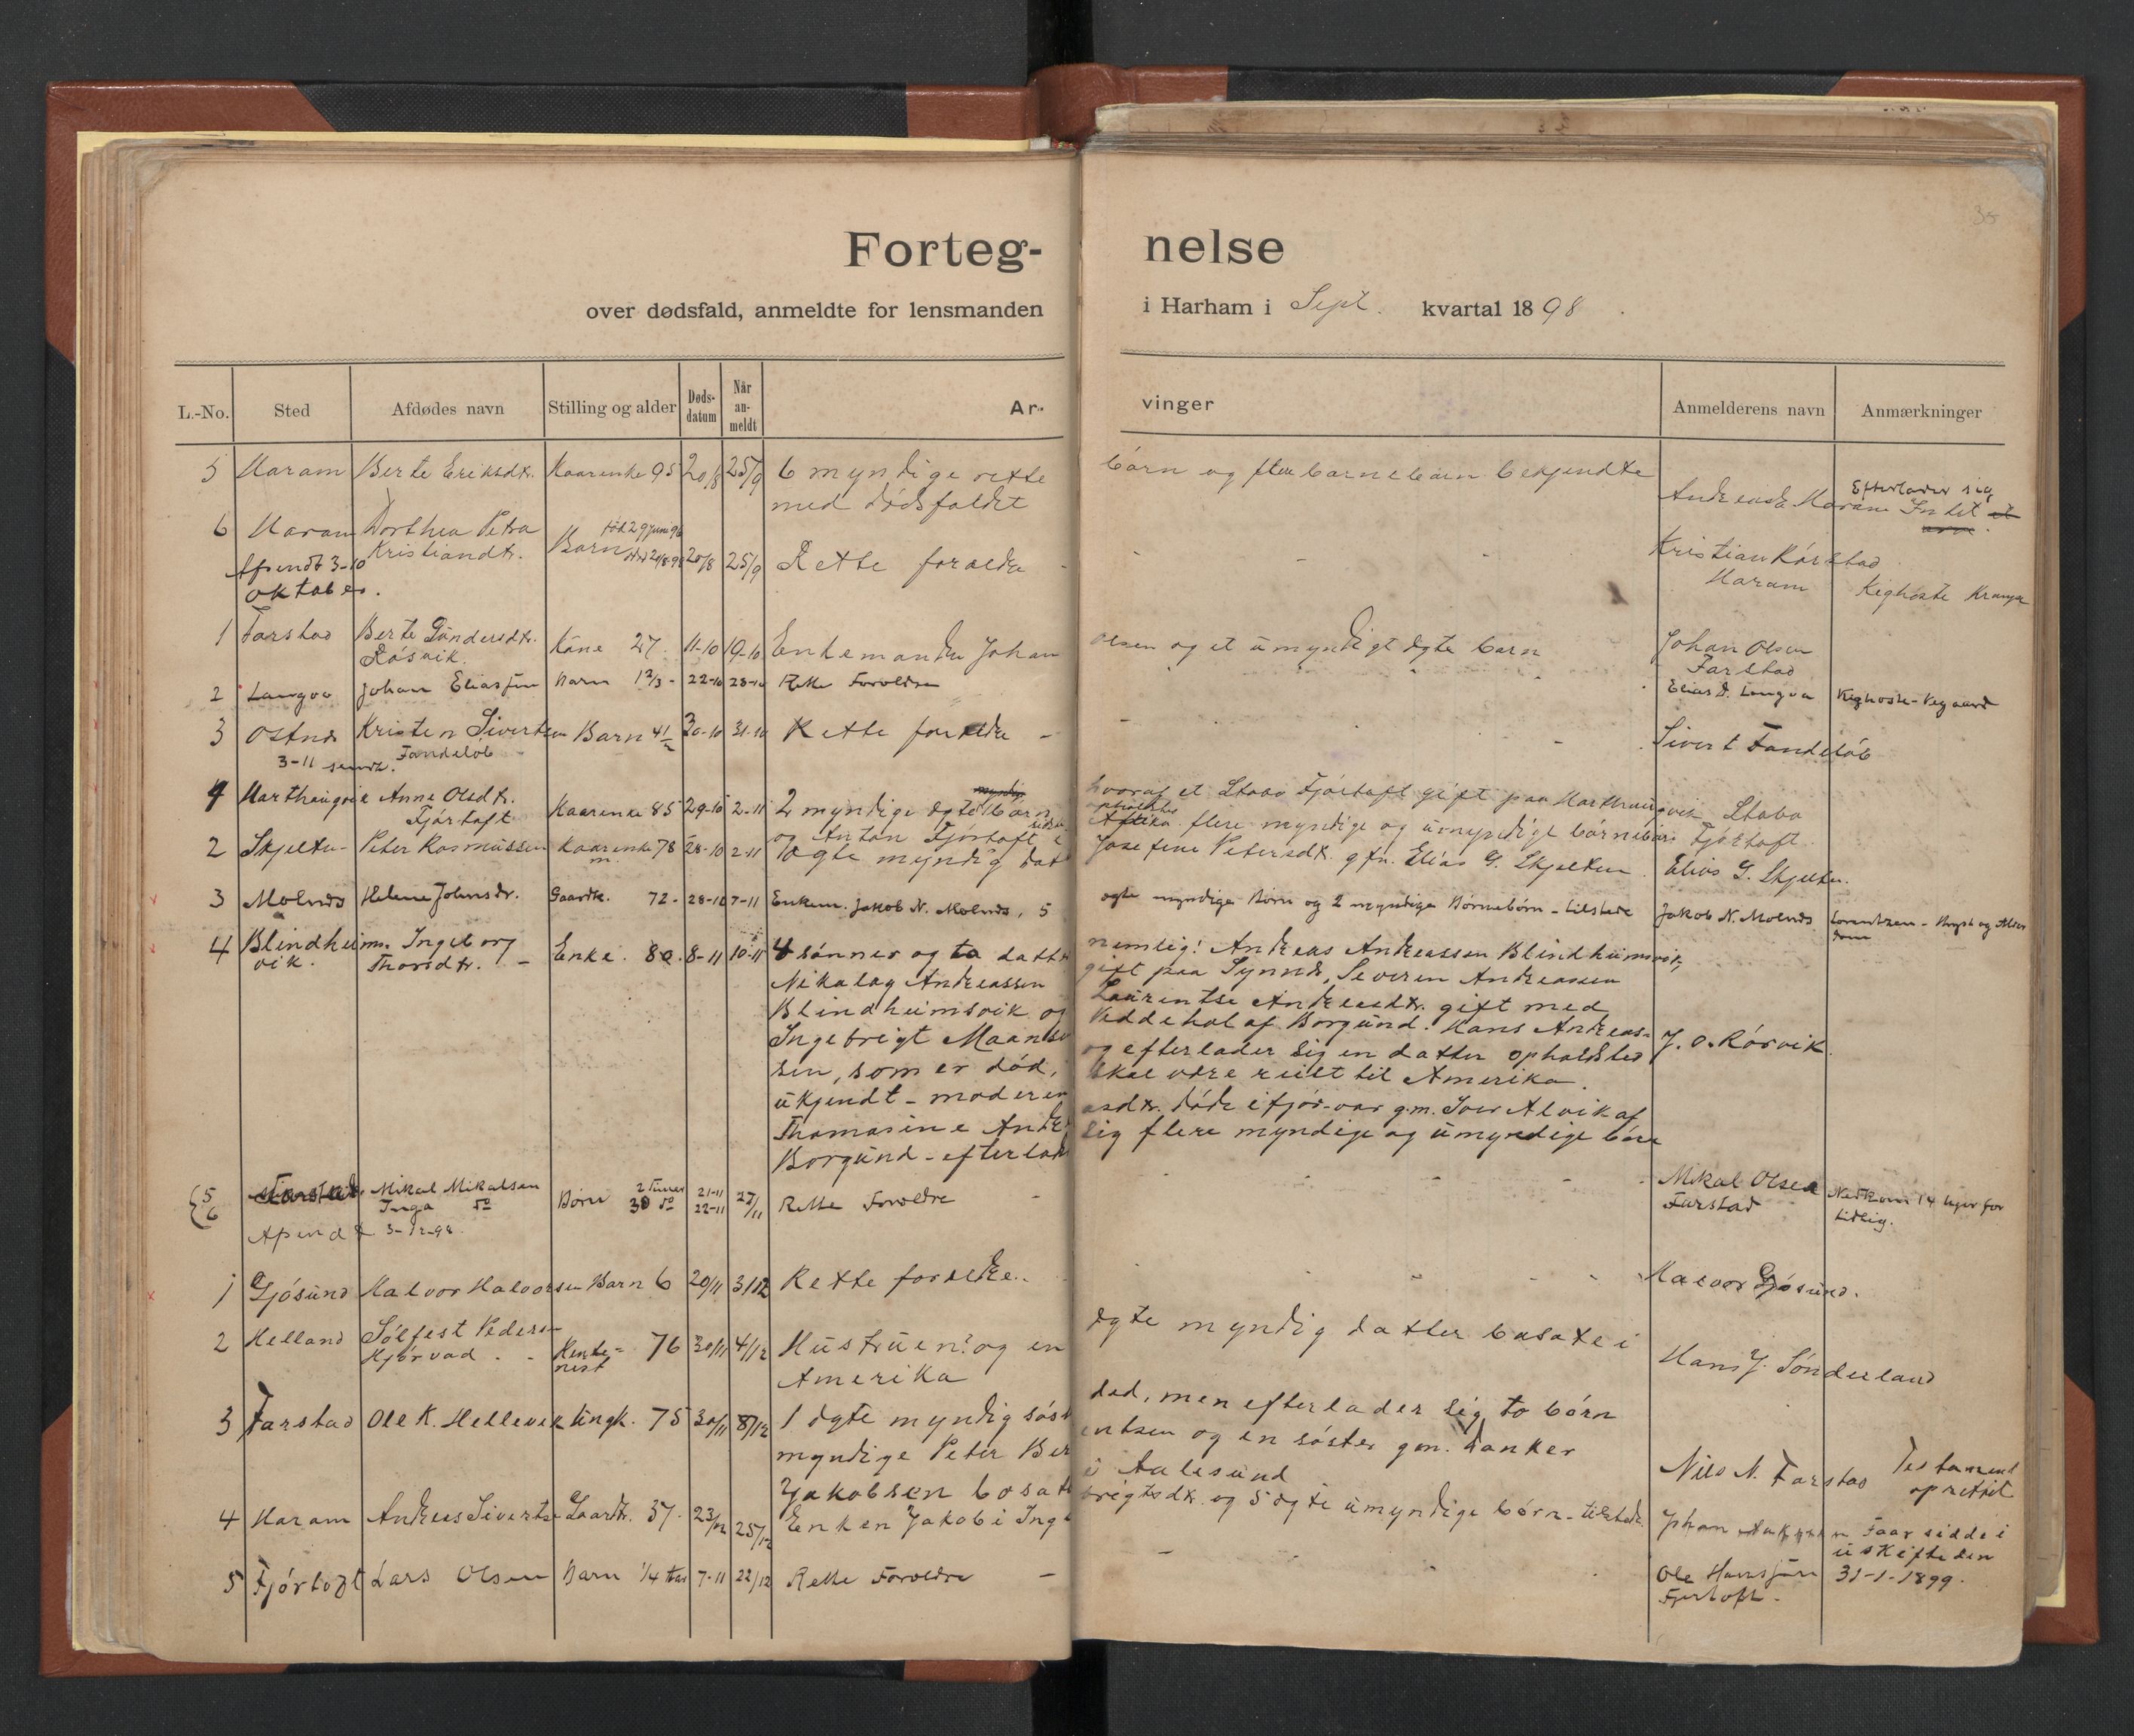 35
Forteg-nelse
over dødsfald, anmeldte for lensmanden i Harham i Sept. kvartal 1898
L.-No. Sted Afdødes navn Stilling og alder Døds-datum Når an-meldt Ar-vinger Anmelderens navn Anmærkninger
5 Haram Berte Eriksdtr. Kaarenke 95 20/8 25/9 6 myndige rette børn og flere barnebørn bekjendte
med dødsfaldet
Andreas Haram Efterlader sig
Intet
6 Haram Dorthea Petra Barn 20/8 25/9 Rette forældre - - -
Kristiandtr.
Kristian Rørstad
Haram Kighoste
Afsendt 3-10
oktober.
1 Farstad Berte Gundersdtr. Kone 27. 11-10 19-10 Enkemanden Johan Olsen og et umyndigt ægte barn Johan Olsen
Røsvik. Farstad
2 Longva Johan Eliassen Barn 1 2/3 - 22-10 23-10 Rette Forældre Elias D. Longva Kighoste-Vegaard
3 Østnæs Kristen Sivertsen Barn 4 1/2 30-10 31-10 Rette forældre - - - Sivert Tandeløb
Tandeløb
3-11 sendt.
Harthaugvik Anne Olsdtr. Kaarenke 85 29-10 2-11 2 myndige ægte børn hvoraf et Stabo Fjørtoft gift paa Harthaugvik Stabo
Fjørtoft og Anton Fjørtoft i flere myndige og umyndige børnebørn Fjørtoft
2 Skjelten Peter Rasmussen Kaarenke 78 28-10 2-11 1 ægte myndig dat Josefine Petersdtr. gfn. Elias G. Skjelten Elias G. Skjelten.
m.
3 Molnes Helene Johnsdr. Gaardk. 72 - 28-10 7-11 Enkem. Jakob N. Molnes, 5 ægte myndige Børn og 2 myndige Børnebørn - tilstede Jakob N. Molnes
4 Blindheims Ingeborg Enke. 80. 8-11 10-11 4 sønner og to dattre nemlig: Andreas Andreassen Blindheimsvik,
vik. Thorsdtr. -
Nikolay Andreassen gift paa Synnes, Severin Andreassen
Blindheimsvik og Laurentse Andreasdtr. gift med
Ingebrigt Maansen Veddehol af Borgund. Hans Andreas-
sen, som er død, og efterlader sig en datter opholdsted J. O. Rørvik.
ukjendt - moderen skal være reist til Amerika.
Thomasine Andreasdtr. døde ifjor-var g.m. Iver Alvik af
Borgund - efterlader sig flere myndige og umyndige børn
5 Mikal Mikalsen Børn 2 Timer 21-11 27/11 Rette Forældre - - - Mikal Olsen
6 Inga do 30 do 22-11 Farstad
tidlig.
Afsendt 3-12-98
1 Gjøsund Halvor Halvorsen Barn 6 20/11 3/12 Rette forældre. - - - Halvor Gjøsund.
2 Helland Sølfest Pedersen 76 30/11 4/12 Hustruen? og en ægte myndig datter bosatte i
Kjørvad - - Amerika Hans J. Sønderland
3 Farstad Ole K. Hellevik Ungk. 75 30/11 8/12 1 ægte myndig søst død, men efterlader sig to børn
myndige Peter Berentsen og en søster gm. Hanker
Jakobsen bosatt i Aalesund Nils N. Farstad Testament
oprettet
4 Haram Andreas Sivertsen Gaardbr. 37. 23/12 25/12 Enken Jakobi Ingebrigtsdtr. og 5 ægte umyndige børn - tilstede. Johan Faar sidde i
uskifte den
31-1-1899.
5 Fjørtoft Lars Olsen Barn 1/4 Aar 7-11 22/12 Rette Forældre - - - Ole Hansen
Fjørtoft.